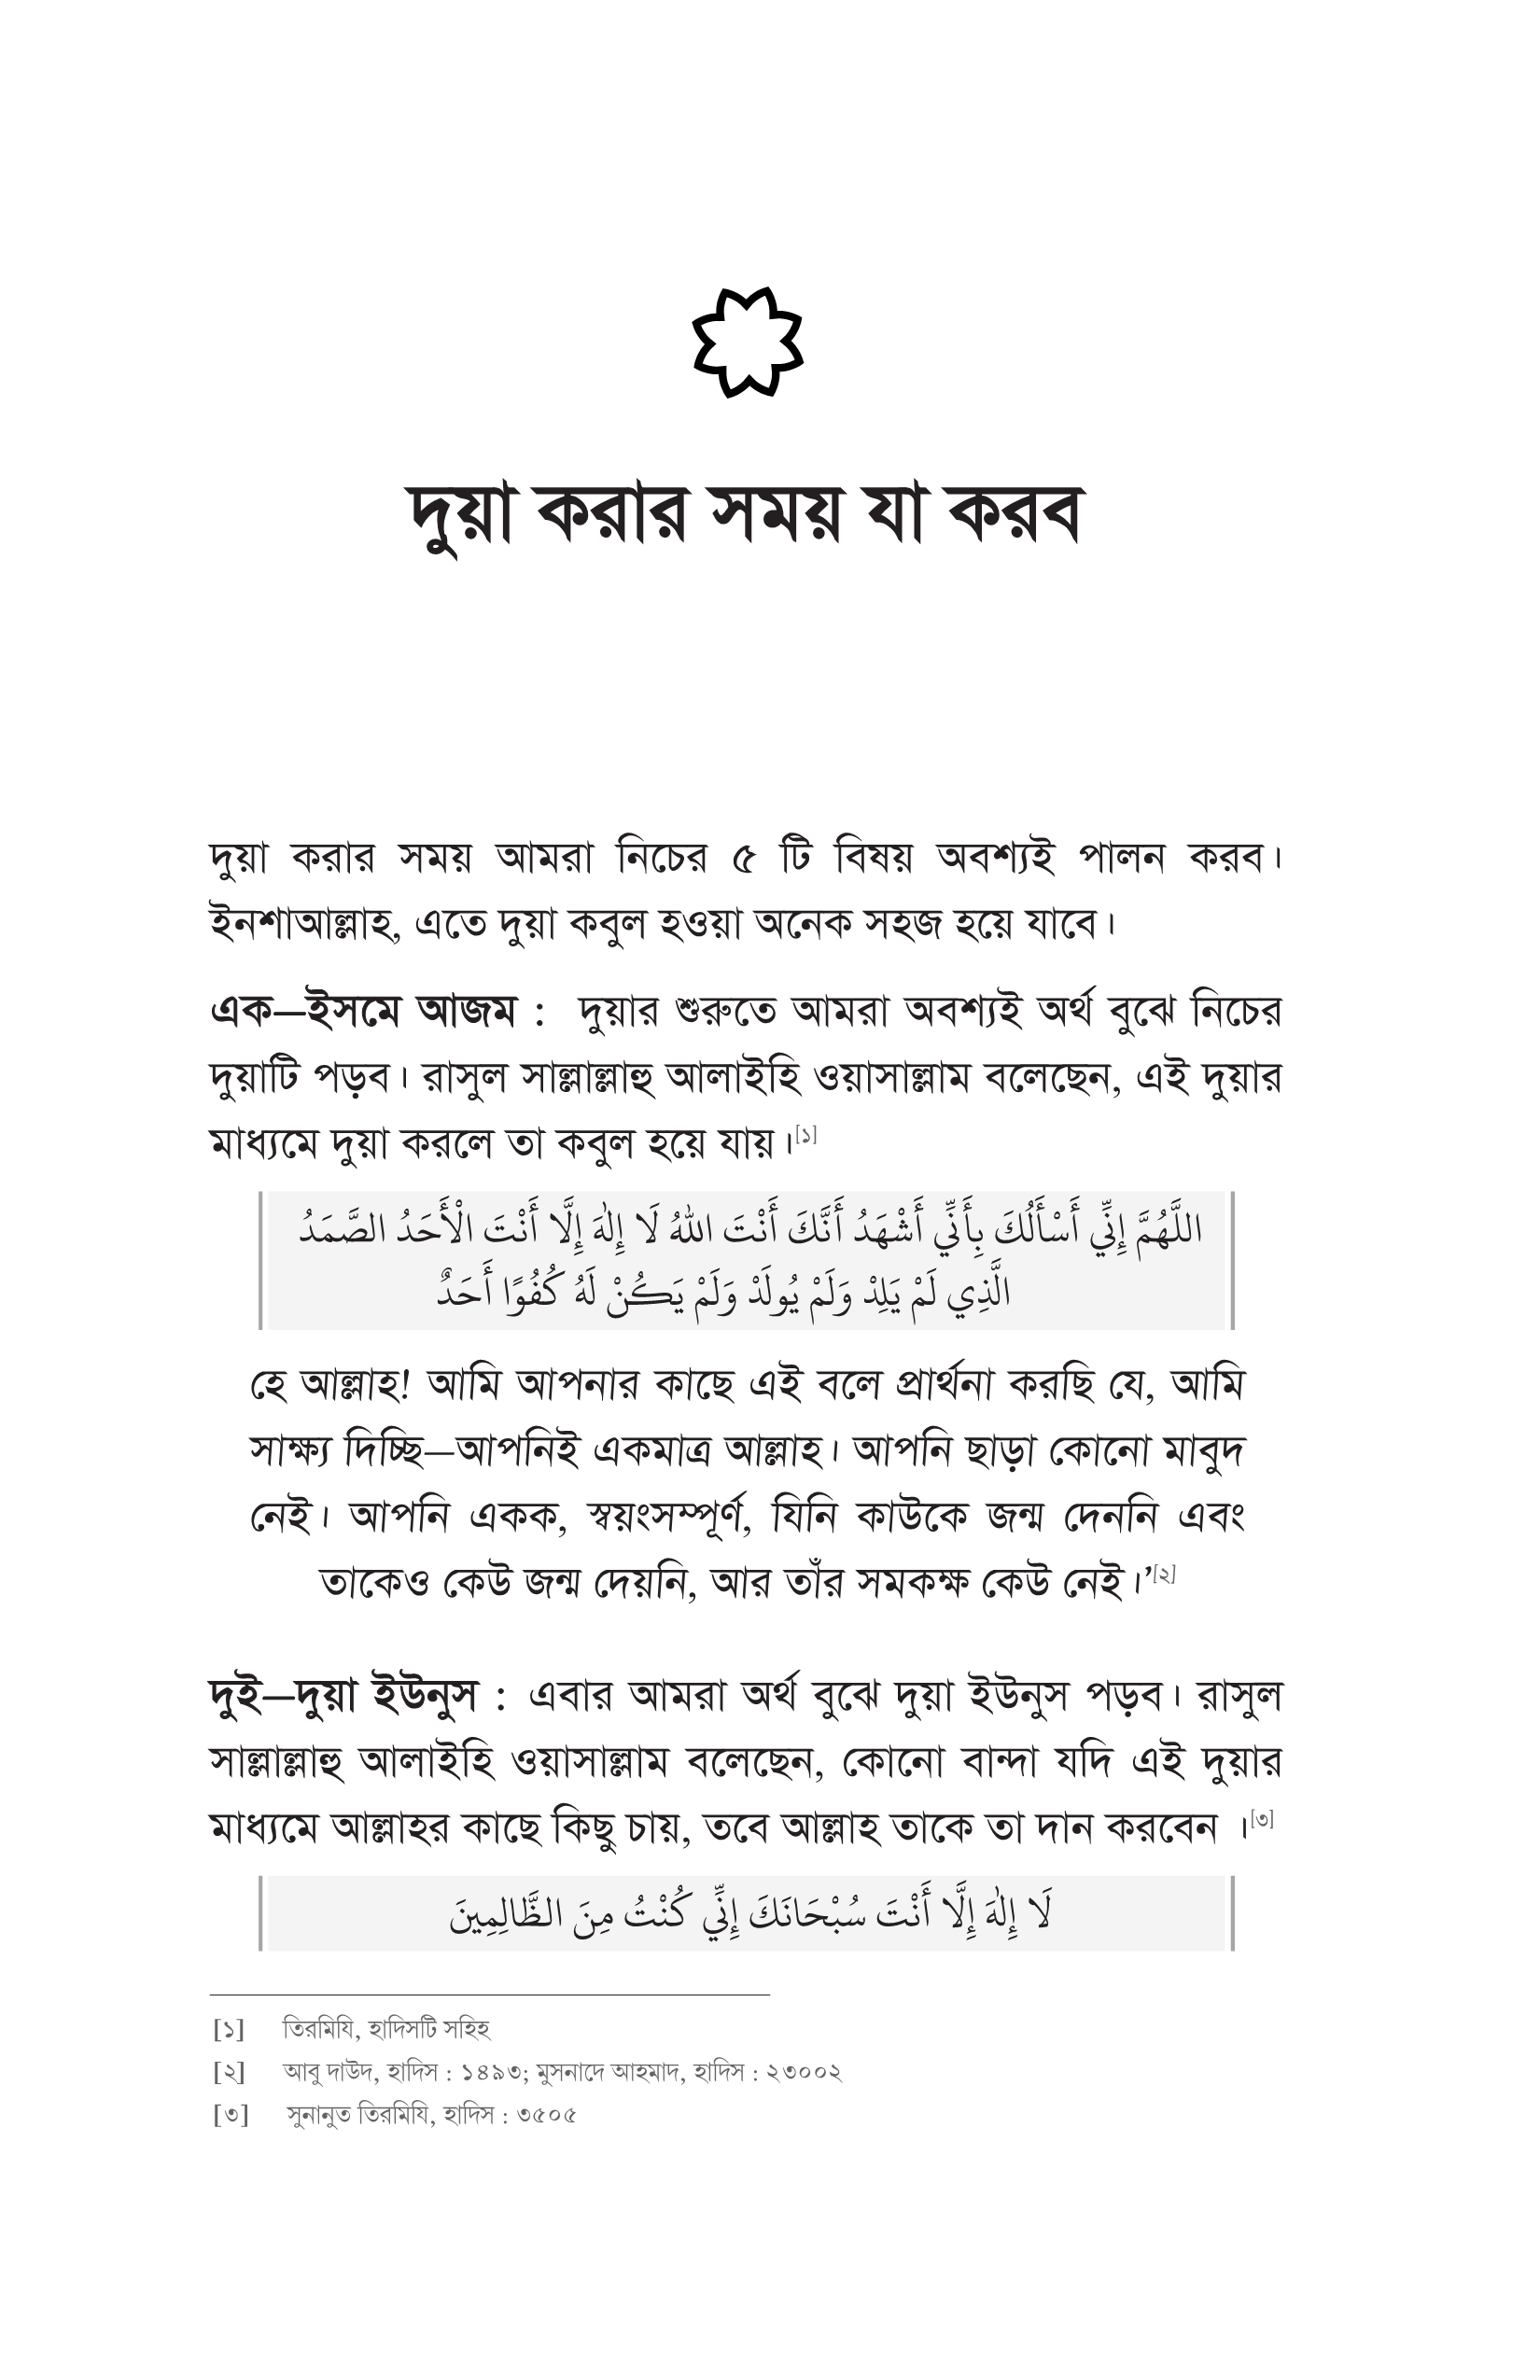 দুয়া করার সময় যা করব
দুয়া করার সময় আমরা নিচের ৫ টি বিষয় অবশ্যই পালন করব।
ইনশাআল্লাহ, এতে দুয়া কবুল হওয়া অনেক সহজ হয়ে যাবে।
এক—ইসমে আজম : দুয়ার শুরুতে আমরা অবশ্যই অর্থ বুঝে নিচের
দুয়াটি পড়ব। রাসুল সাল্লাল্লাহু আলাইহি ওয়াসাল্লাম বলেছেন, এই দুয়ার
মাধ্যমে দুয়া করলে তা কবুল হয়ে যায়।[১]
اللَّهُمَّ إِنِّي أَسْأَلُكَ بِأَنِّي أَشْهَدُ أَنَّكَ أَنْتَ اللهُ لَا إِلٰهَ إِلَّا أَنْتَ الْأَحَدُ الصَّمَدُ
الَّذِي لَمْ يَلِدْ وَلَمْ يُولَدْ وَلَمْ يَكُنْ لَهُ كُفُوًا أَحَدٌ
হে আল্লাহ! আমি আপনার কাছে এই বলে প্রার্থনা করছি যে, আমি
সাক্ষ্য দিচ্ছি—আপনিই একমাত্র আল্লাহ। আপনি ছাড়া কোনো মাবুদ
নেই। আপনি একক, স্বয়ংসম্পূর্ণ, যিনি কাউকে জন্ম দেননি এবং
তাকেও কেউ জন্ম দেয়নি, আর তাঁর সমকক্ষ কেউ নেই।’[২]
দুই—দুয়া ইউনুস : এবার আমরা অর্থ বুঝে দুয়া ইউনুস পড়ব। রাসুল
সাল্লাল্লাহু আলাইহি ওয়াসাল্লাম বলেছেন, কোনো বান্দা যদি এই দুয়ার
মাধ্যমে আল্লাহর কাছে কিছু চায়, তবে আল্লাহ তাকে তা দান করবেন ।[৩]
لَا إِلٰهَ إِلَّا أَنْتَ سُبْحَانَكَ إِنِّي كُنْتُ مِنَ الظَّالِمِينَ
[১] তিরমিযি, হাদিসটি সহিহ
[২] আবু দাউদ, হাদিস : ১৪৯৩; মুসনাদে আহমাদ, হাদিস : ২৩০০২
[৩] সুনানুত তিরমিযি, হাদিস : ৩৫০৫